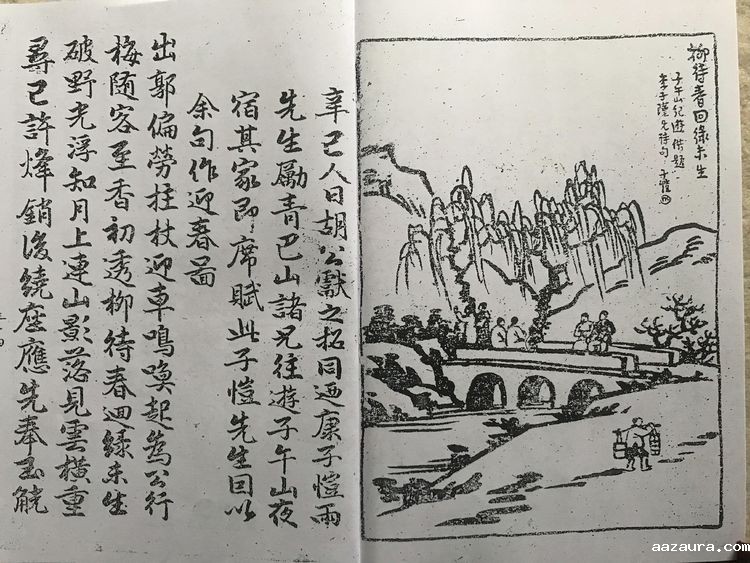 柳待春回綠未生
子午山紀遊借題
李子瑾兄詩句 子愷
辛巳人日胡公獻之招同迺康子愷兩
先生勵青巴山諸兄往遊子午山夜
宿其家即席賦此子愷先生因以
余句作迎春啚
出郭偏勞拄杖迎車鳴喚起為公行
梅隨客至香初透柳待春迴綠未生
破野光浮知月上連山影落見雲橫重
尋已許烽銷後繞座應先奉玉觥
aazaura.com